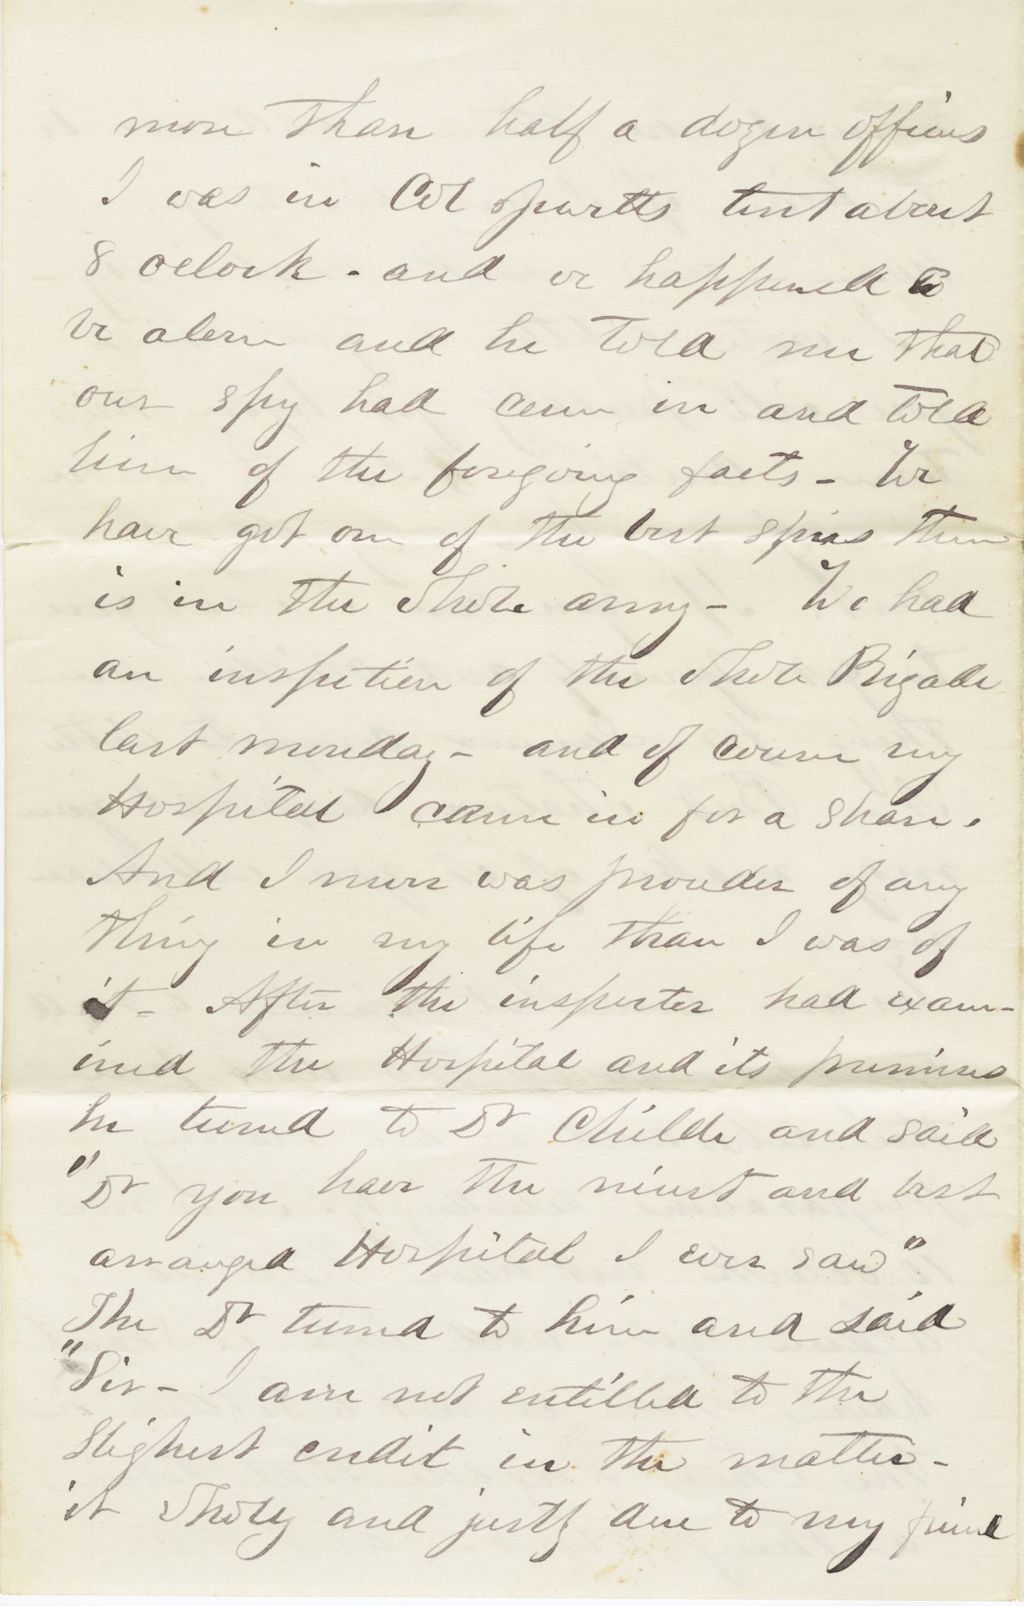 more than half a dozen officers
I was in Col Spurtts tent about
8 oclock - and we happened to
be alone and he told me that
our spy had come in and told
him of the foregoing facts - We
have got one of the best spies there
is in the whole army - We had
an inspection of the whole Brigade
last monday - and of course my
Hospital came in for a share.
And I never was prouder of any
thing in my life than I was of
it - After the inspector had exam-
ined the Hospital and its premises
he turned to Dr Childe and said
"Dr you have the nicest and best
arranged Hospital I ever saw".
The Dr turned to him and said
"Sir - I am not entitled to the
slighest credit in the matter -
it wholy and justly due to my friend